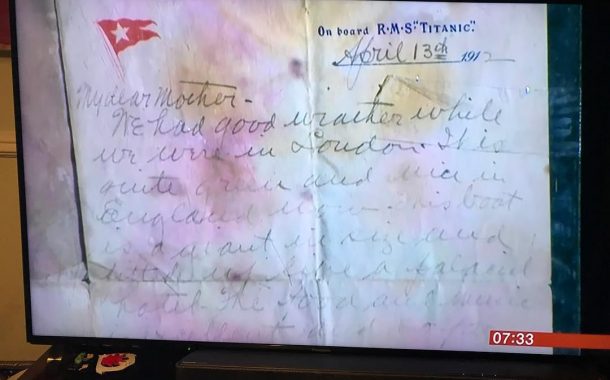 On board R·M·S "TITANIC".
April 13th 1912
My dear Mother -
We had good weather while
we were in London. It is
quite green and nice in
England now. This boat
is a giant in size and
fitted up like a palacial
hotel. The food and music
is excellent and
07:33